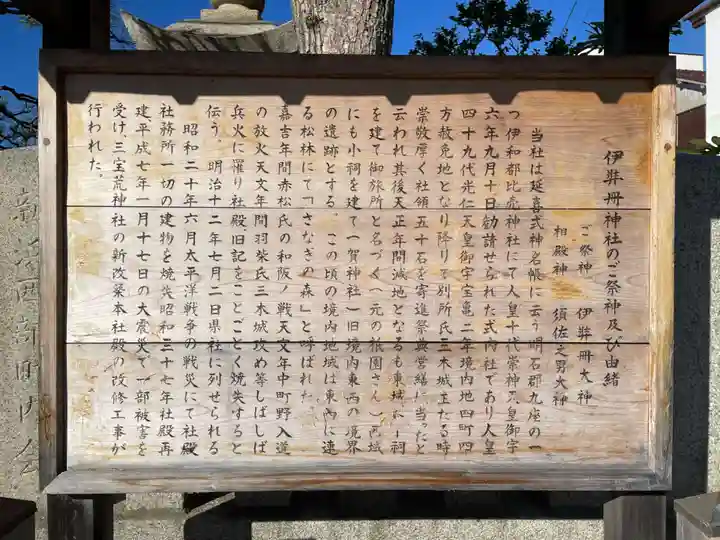 伊弉冊神社のご祭神及び由緒
ご祭神 伊弉冊大神
相殿神 須佐之男大神
当社は延喜式神名帳に云う明石郡九座の一
つ伊和都比売神社にて人皇十代崇神天皇御宇
六年九月十日勧請せられた式内社であり人皇
四十九代光仁天皇御宇宝亀二年境内地四町四
方赦免地となり降りて別所氏三木城主たる時
崇敬厚く社領五十石を寄進祭典営繕に当ったと
云われ其後天正年間減地となるも東域に一祠
を建て御旅所と名づく(元の祇園さん)西域
にも小祠を建て(賀神社)旧境内東西の境界
の遺跡とする。この頃の境内地域は東西に連
る松林にて「さなぎの森」と呼ばれた。
嘉吉年間赤松氏の和阪ノ戦天文年中町野入道
の放火天文年間羽柴氏三木城攻め等しばしば
兵火に罹り社殿旧記をことごとく焼失すると
伝う。明治十二年七月二日県社に列せられる
昭和二十年六月太平洋戦争の戦災にて社殿
社務所一切の建物を焼失昭和三十七年社殿再
建平成七年一月十七日の大震災で一部被害を
受け、三宝荒神社の新改築本社殿の改修工事が
行われた。